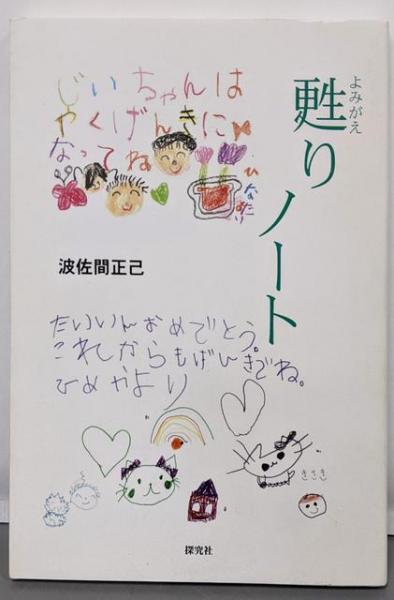 じいちゃんは
やくげんきに
なってね
ひなたより
よみがえ
甦りノート
波佐間正己
たいいんおめでとう。
これからもげんきでね。
ひめかより
ききき
探究社